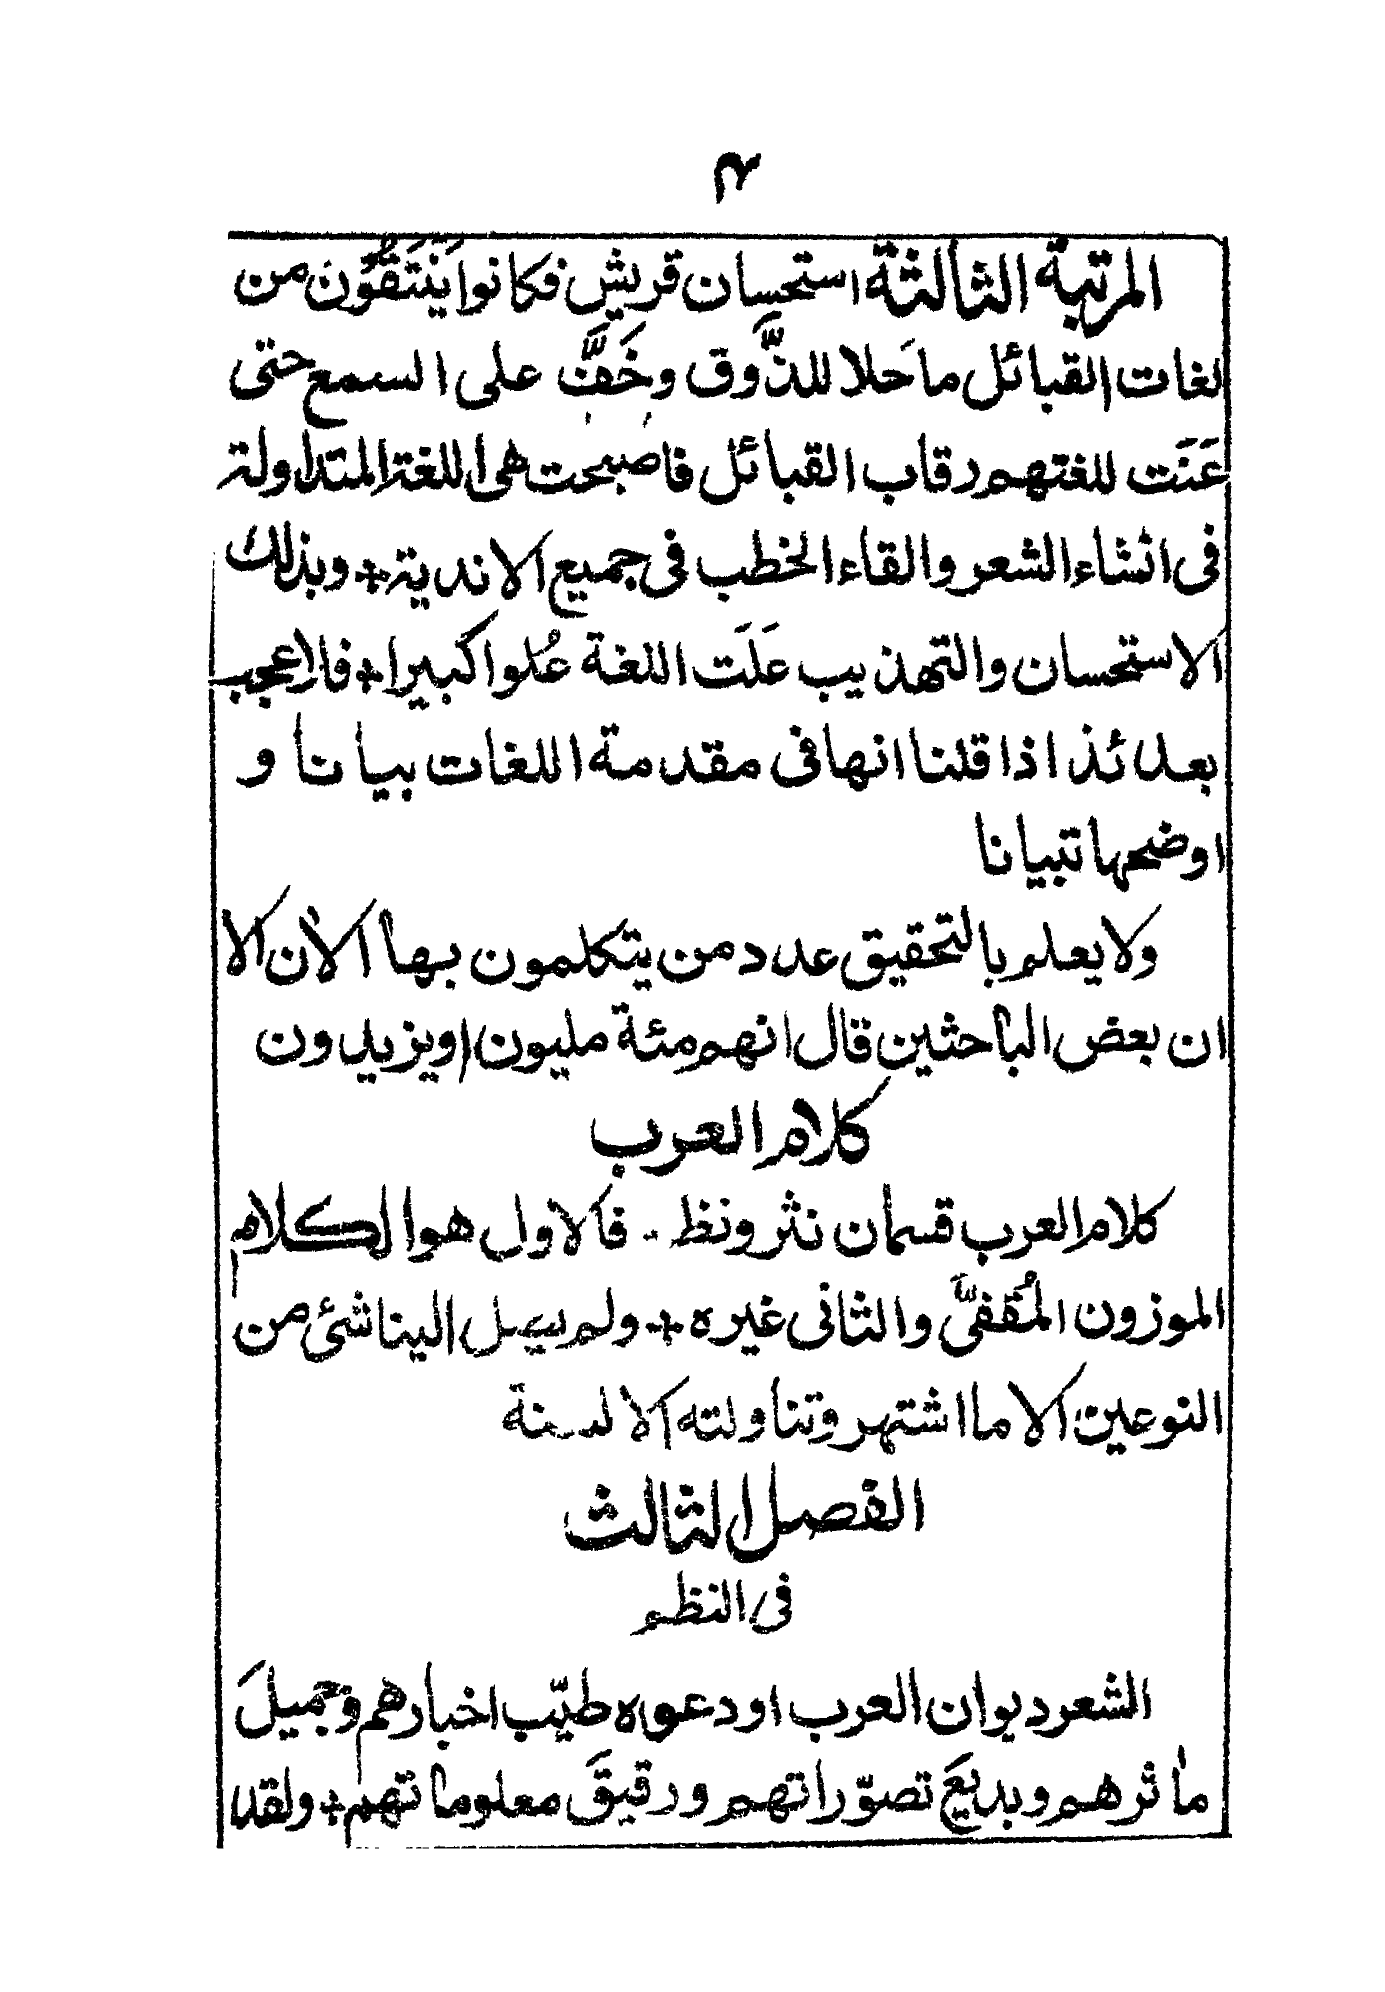 ٣
المرتبة الثالثة استحسان قريش فكانوا يَنْتَقُوْنَ من
لغات القبائل ماحَلا للذَّوق وخَفَّ على السمع حتى
عَنَت للغتهم رقاب القبائل فاصبحت هى اللغة المتداولة
فى انشاء الشعر والقاء الخطب فى جميع الاندية + وبذلك
الاستحسان والتهذيب عَلَت اللغة عُلوا كبيرا + فلاعجب
بعدئذ اذا قلنا انها فى مقدمة اللغات بيانا و
اوضحها تبيانا
ولا يعلم بالتحقيق عدد من يتكلمون بها الاٰن الا
ان بعض الباحثين قال انهم مئة مليون او يزيدون
كلام العرب
كلام العرب قسمان نثر ونظ . فالاول هو الكلام
الموزون المُقفىَّ والثانى غيره + ولم يصل الينا شئ من
النوعين الا ما اشتهر وتناولته الالسنة
الفصل الثالث
فى النظم
الشعر ديوان العرب اودعوه طيّب اخبارهم وجميلَ
ماٰثرهم وبديعَ تصوّراتهم ورقيقَ معلوماتهم + ولقد